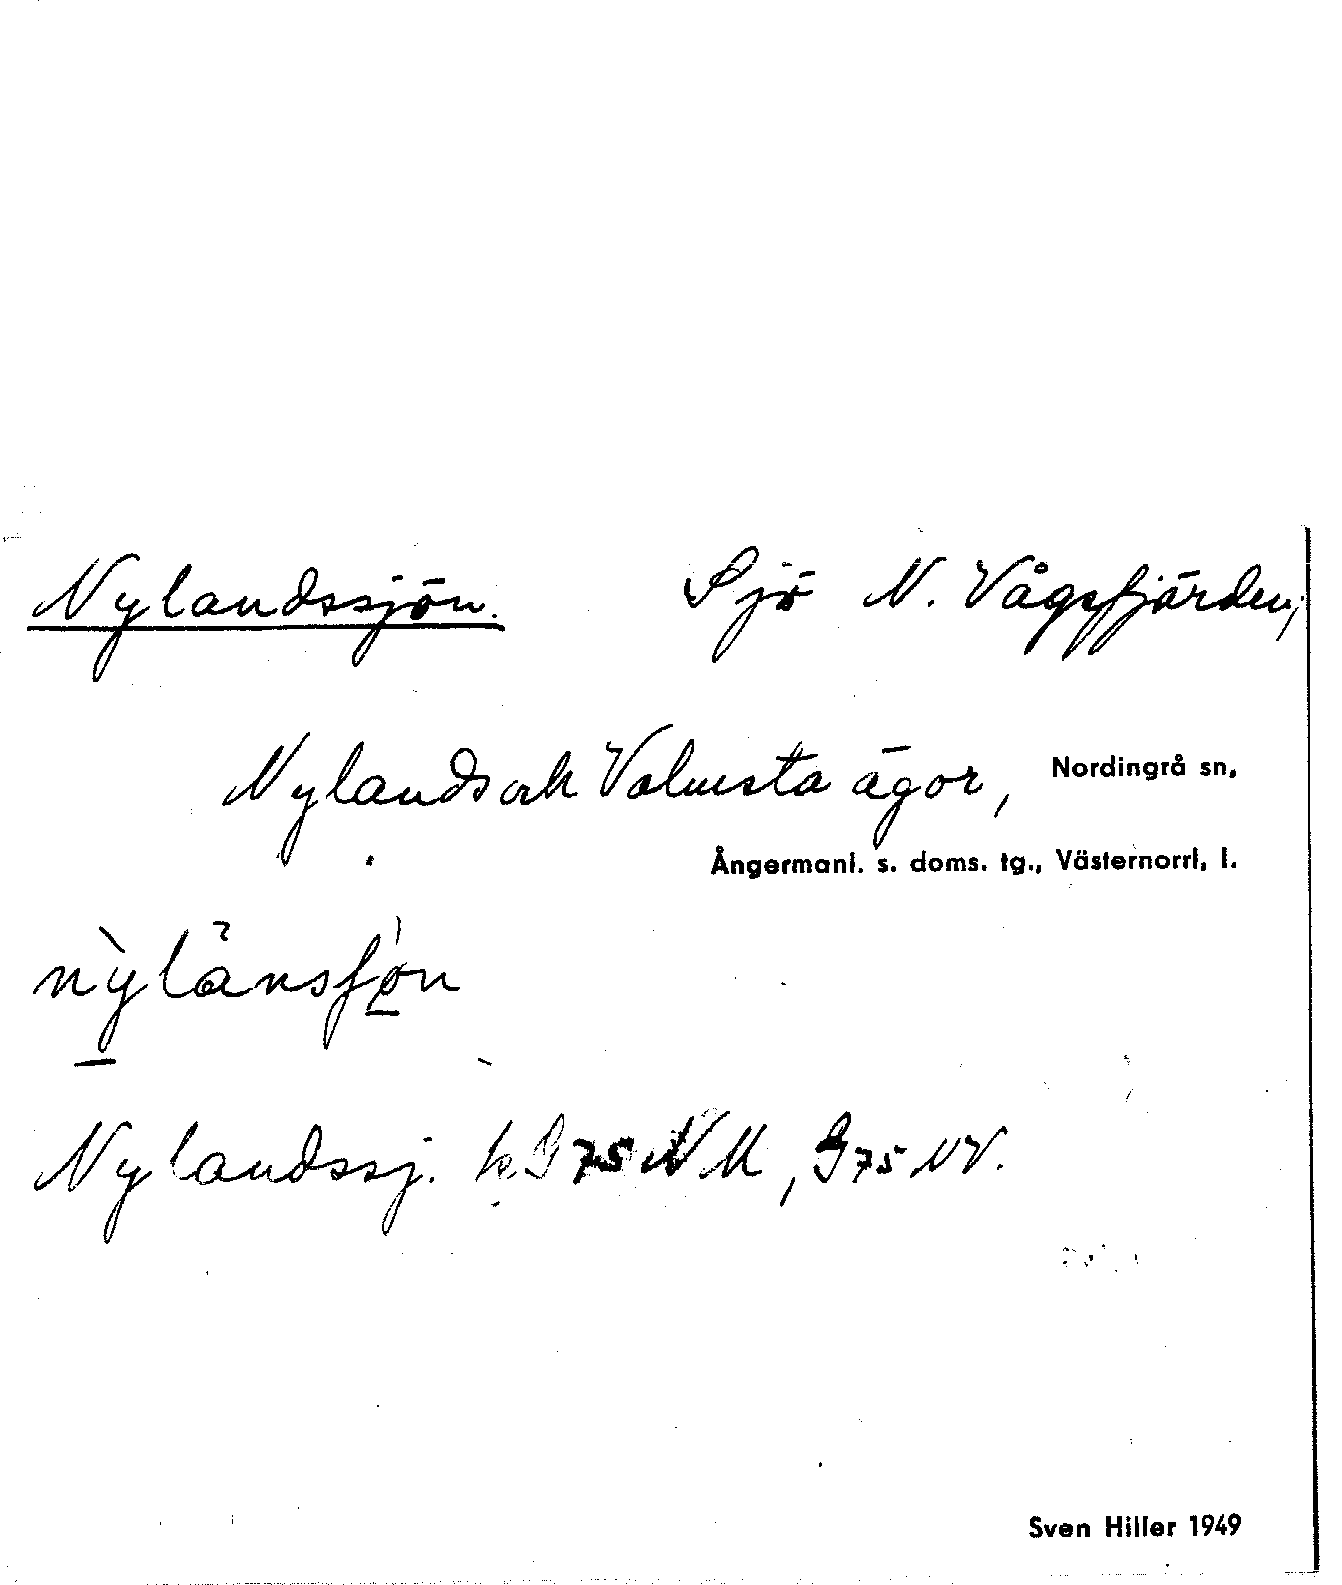 Nylandssjön. Sjö N. Vågsfjärden,
Nylands och Valmsta ägor, Nordingrå sn,
Ångermanl. s. doms. tg., Västernorrl. l.
nylånsʃøn
Nylandssj. k G75 NV, G75 NV.
Sven Hiller 1949